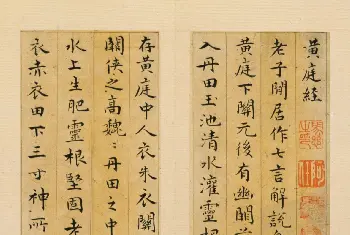 黃庭経
老子閒居作七言解說身
黃庭下關元後有幽闕前
入丹田玉池清水灌靈根
存黃庭中人衣朱衣關
闕俠之高魏丹田之中
水上生肥靈根堅固老
衣赤衣田下三寸神所